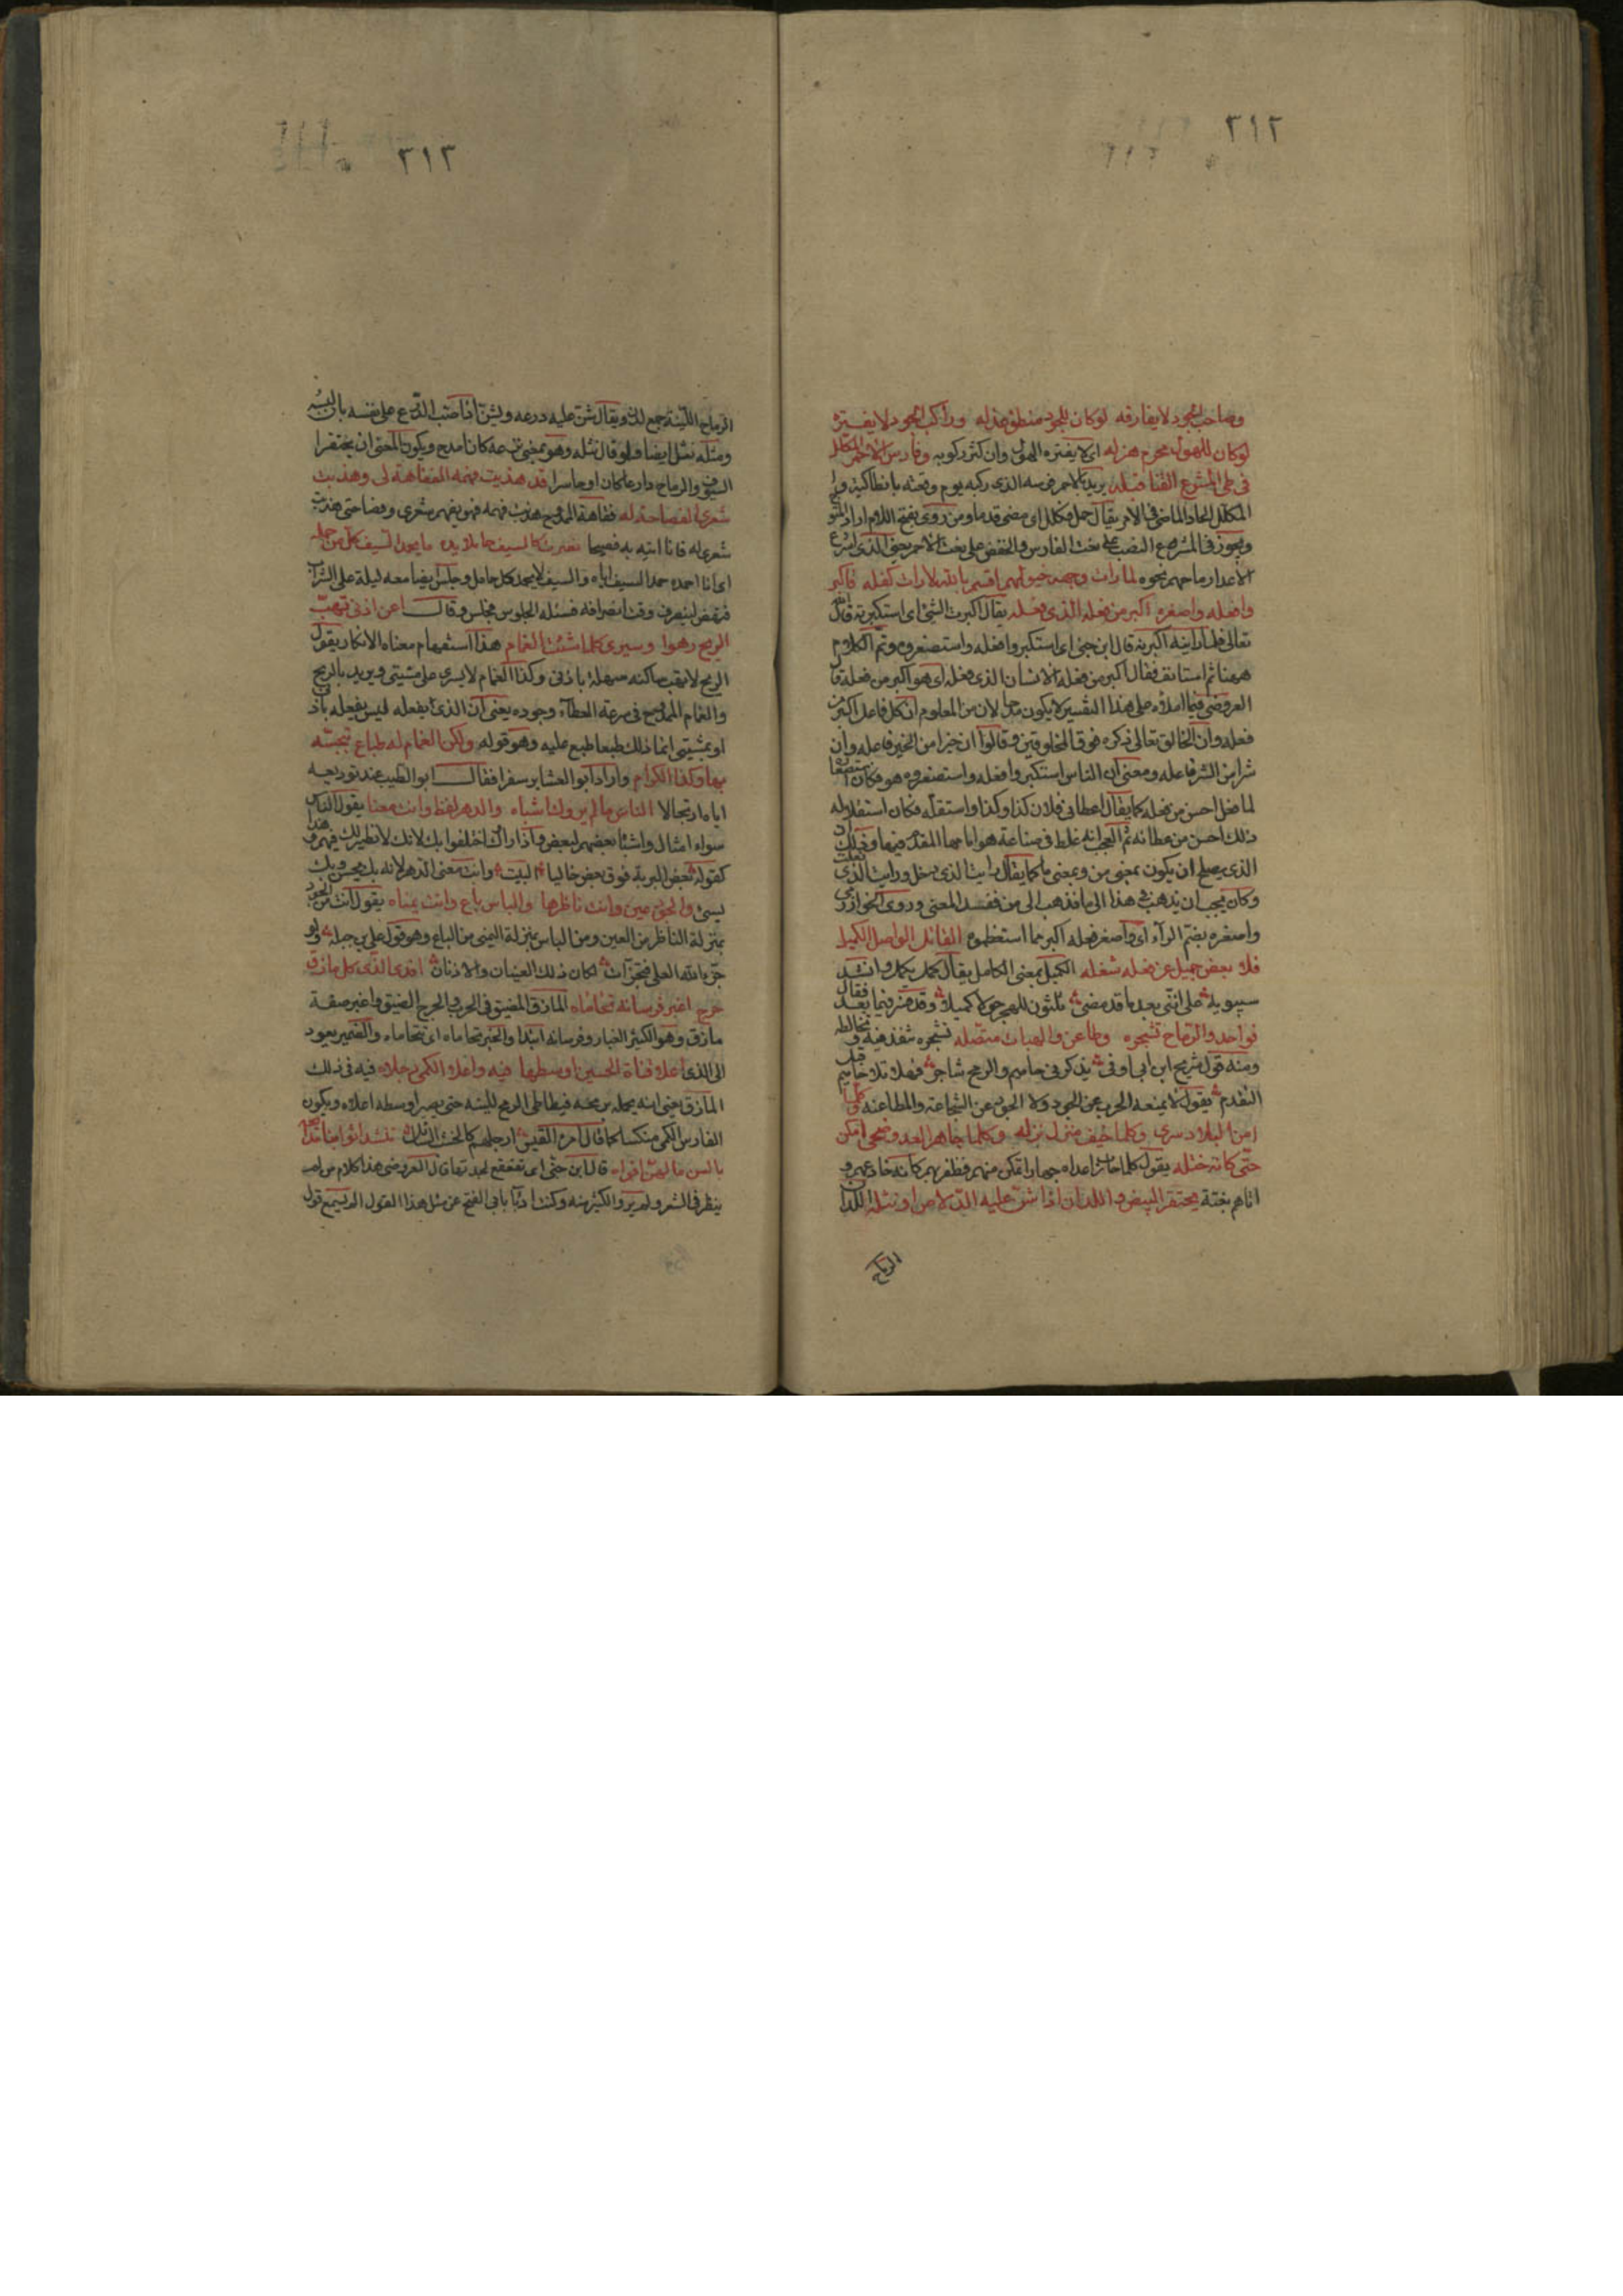 ٢١٢
وصاحب الجود لا يفارقه لو كان للجود منطق عذله وراكب الهول لا يفتره
لو كان للهول محزم هزله اى لا يفتره الهول وان كثر ركوبه وفارس الاحمر المكلل
فى طى المشرع القنا قبله يريد بالاحمر فرسه الذى ركبه يوم وقعته بانطاكية و
المكلل الحاد الماضى فى الامر يقال حمل فكلل اى مضى قدما ومن روى بفتح اللام اراد
ويجوز فى المشرع النصب على نعت الفارس والخفض على نعت الاحمر يعنى الذى اشرع
الاعداء رماحهم نحوه لما رات وجهه خيولهم اقسم بالله لا رات كفله فاكبر
وا فعله واصغره اكبر من فعله الذى فعله يقال اكبرت الشئ اى استكبرته قال
تعالى فلما راينه اكبرنه قال ابن جنى اى استكبروا فعله واستصغره وتم الكلام
ههنا ثم استانف فقال اكبر من فعله الانسان الذى فعله اى هو اكبر من فعله قا
العروضى فيما املاه على هذا التفسير لا يكون مدحا لان من المعلوم ان كل فاعل اكبر من
فعله وان الخالق تعالى ذكره فوق المخلوقين وقالوا ان خيرا من الخير فاعله وان
شرا من الشر فاعله ومعنى ان الناس استكبروا فعله واستصغره هو فكان استصغا
لما فعل احسن من فعله كما يقال اعطانى فلان كذا وكذا واستقله فكان استقلاله
ذلك احسن من عطائه ثم العجب انه غلط فى صناعة هو امامها المقدم فيها وذلك
الذى يصلح ان يكون بمعنى من وبمعنى ما كما يقال رايت الذى دخل ورايت الذى
وكان يجب ان يذهب فى هذا الى ما فذهب الى من ففسد المعنى وروى الخوارزمى
واصغره بضم الراء اى واصغر فعله اكبر مما استعظموه القاتل الواصل الكميل
فلا بعض جميل عن فعله شغله الكميل بمعنى الكامل يقال كمل يكمل وانشد
سيبويه على اننى بعد ما قد مضى ثلثون للهجر حولا كميلا وقد فسر فيما بعد فقال
فواحد والرماح تشجره وطاعن والهبات متصله تشجره تنفذ فيه وتخالطه
ومنه قول شريح ابن ابى اوفى يذكرنى حاميم والرمح شاجر فهلا تلا حاميم قبل
التقدم يقول لا يمنعه الحرب عن الجود ولا الجود عن الشجاعة والمطاعنه وكلما
امن البلاد سرى وكلما خيف منزل نزله وكلما جاهر العدو ضحى امكن
حتى كانه ختله يقول كلما حارب اعداه جهارا تمكن منهم فظفر بهم كانه خادعهم و
اتاهم بغتة يحتقر البيض واللدان اذا شن عليه الدلاص او نثله اللدان
الرماح
٢١٣
الرماح اللينة جمع لدن ويقال شن عليه درعه ويشن اذا صب الدرع على نفسه بان لبسه
ومثله نثل ايضا ولو قال نثله وهو بمعنى نزعه كان امدح ويكون المعنى ان يحتقرا
السيوف والرماح دارعا كان او حاسرا قد هذبت فهمه الفقاهة لى وهذبت
شعرى الفصاحة له فقاهة الممدوح هذبت فهمه فهو يفهم شعرى وفصاحتى هذبت
شعرى له فانا اتيه به فصيحا فصرت كالسيف حامدا يده ما يحمد السيف كل من حمله
اى انا احمده حمد السيف اياه والسيف لا يحمد كل حامل وجلس ايضا معه ليلة على الشراب
فنهض لينصرف وقت انصرافه فسئله الجلوس فجلس وقال اعن اذنى تهب
الريح رهوا وسيرى كلما شئت الغمام هذا استفهام معناه الانكار يقول
الريح لا تهب ساكنه سهلة باذنى وكذا الغمام لا يسرى على مشيتى ويريد بالريح
والغمام الممدوح فى سرعة العطاء وجوده يعنى ان الذى يفعله ليس يفعله باذنى
او بمشيتى انما ذلك طبعا طبع عليه وهو قوله ولكن الغمام له طباع تبجسه
بها وكذا الكرام واراد ابو العشاير سفرا فقال ابو الطيب عند توديعه
اياه ارتجالا الناس ما لم يروك اشباه والدهر لفظ وانت معنا يقول الناس
سواء امثال واشباه بعضهم لبعض واذا راوك اختلفوا بك لانك لا نظير لك فيهم
كقوله بعض البرية فوق بعض خاليا البيت وانت معنى الدهر لانه بك يحسن وبك
يسئ والجود عين وانت ناظرها والباس باع وانت يمناه يقول انت من الجود
بمنزلة الناظر من العين ومن الباس بمنزلة اليمنى من الباع وهو قول على بن جبلة ولو
جزا بالله العلى فتجزات لكان ذلك العينان والاذنان افدى الذى كل مازق
حرج اغبر فرسانه تحاماه المازق المضيق فى الحرب والحرج الضيق واغبر صفة
مازق وهو الكثير الغبار وفرسانه ابتدا والخبر تحاماه اى تتحاماه والضمير يعود
الى الذى اعلا قناة الحسين اوسطها فيه واعلا الكمى رجلاه فيه فى ذلك
المازق يعنى انه يحمله برمحه فيطاطى الرمح للينه حتى يصير اوسطه اعلاه ويكون
الفارس الكمى منكسا كما قال امرء القيس ارجلهم كالخشب الشائل تنشد اثوابنا مدائحه
بالسن ما لهن افواه قال ابن جنى اى تقعقع لجدتها قال العروضى هذا كلام من لم
ينظر فى الشعر ولم يرو الكثير منه وكنت اربا بابى الفتح عن مثل هذا القول الم يسمع قول